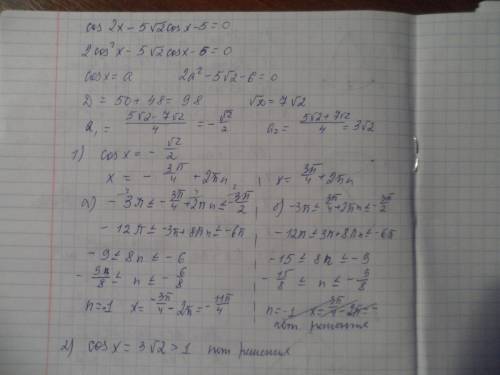 cos 2x - 5√2 cos x - 5 = 0
2cos²x - 5√2 cos x - 6 = 0
cos x = a    2a² - 5√2 - 6 = 0
D = 50 + 48 = 98    √D = 7√2
a₁ = (5√2 - 7√2)/4 = -√2/2    a₂ = (5√2 + 7√2)/4 = 3√2
1) cos x = -√2/2
x = -3π/4 + 2πn ;    x = 3π/4 + 2πn
a) -3π ≤ -3π/4 + 2πn ≤ -3π/2    б) -3π ≤ 3π/4 + 2πn ≤ -3π/2
-12π ≤ -3π + 8πn ≤ -6π    -12π ≤ 3π + 8πn ≤ -6π
-9 ≤ 8n ≤ -6    -15 ≤ 8n ≤ -9
-9π/8 ≤ n ≤ -6/8    -15/8 ≤ n ≤ -9/8
n = -1    x = -3π/4 - 2π = -11π/4    n = -1    x = 3π/4 - 2π = -
нет решения
2) cos x = 3√2 > 1    нет решения